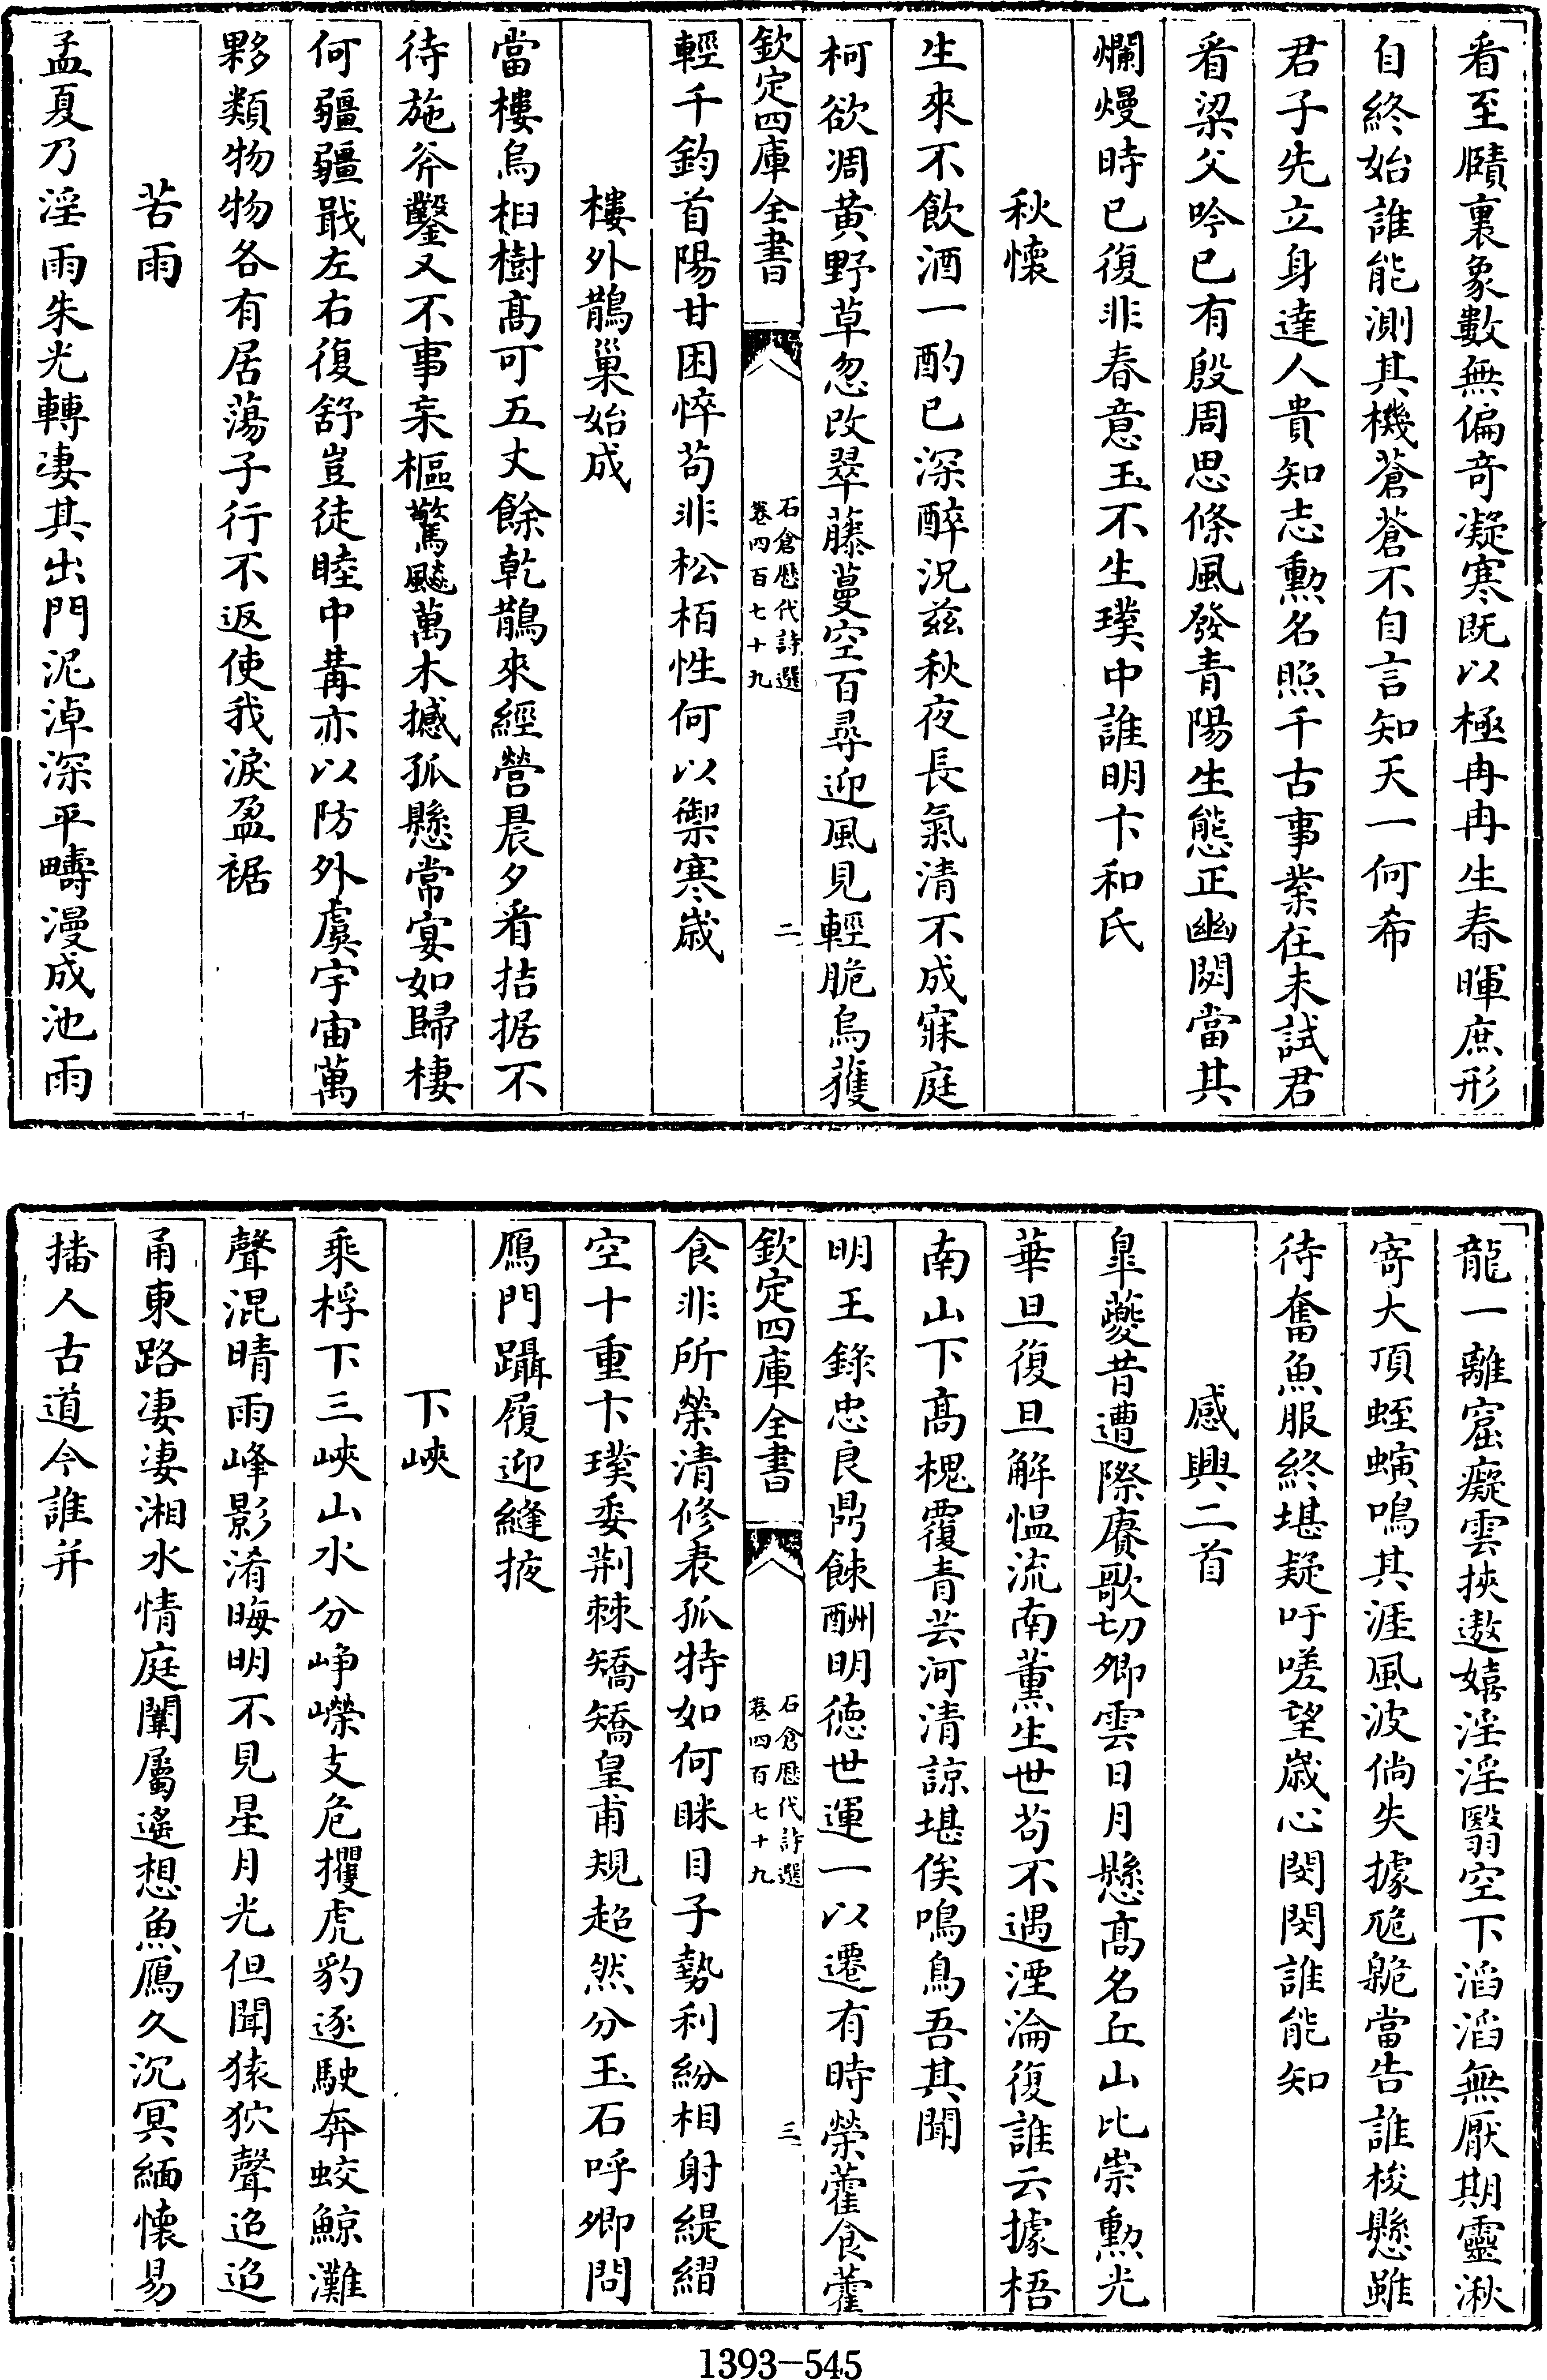 看至賾裏象數無偏奇凝寒既以極冉冉生春暉庶形
自終始誰能測其機蒼蒼不自言知天一何希
君子先立身達人貴知志勲名照千古事業在未試君
看梁父吟已有殷周思條風發青陽生態正幽閟當其
爛熳時已復非春意玉不生璞中誰明卞和氏
秋懷
生來不飲酒一酌已深醉況兹秋夜長氣清不成寐庭
柯欲凋黄野草忽改翠藤蔓空百尋迎風見輕脆烏獲
欽定四庫全書
石倉歷代詩選
卷四百七十九
二
輕千鈞首陽甘困悴苟非松栢性何以禦寒歲
樓外鵲巢始成
當樓烏桕樹髙可五丈餘乾鵲來經營晨夕看拮据不
待施斧鑿又不事枲樞驚飇萬木撼孤懸常宴如歸棲
何疆疆戢左右復舒豈徒睦中冓亦以防外虞宇宙萬
夥類物物各有居蕩子行不返使我淚盈裾
苦雨
孟夏乃淫雨朱光轉凄其出門泥淖深平疇漫成池雨
龍一離窟癡雲挾遨嬉淫淫翳空下滔滔無厭期靈湫
寄大頂蛭螾鳴其涯風波倘失據卼臲當告誰梭懸雖
待奮魚服終堪疑吁嗟望歲心閔閔誰能知
感興二首
臯夔昔遭際賡歌切卿雲日月懸髙名丘山比崇勲光
華旦復旦解愠流南薰生世苟不遇湮淪復誰云據梧
南山下髙槐覆青芸河清諒堪俟鳴鳥吾其聞
明王錄忠良鼎餗酬明徳世運一以遷有時榮藿食藿
欽定四庫全書
石倉歷代詩選
卷四百七十九
三
食非所榮清修表孤特如何眯目子勢利紛相射緹縎
空十重卞璞委荆棘矯矯皇甫規超然分玉石呼卿問
鴈門躡履迎縫掖
下峽
乘桴下三峽山水分峥嶸支危攫虎豹逐駛奔蛟鯨灘
聲混晴雨峰影淆晦明不見星月光但聞猿狖聲迢迢
甬東路凄凄湘水情庭闈屬遙想魚鴈久沉冥緬懷易
播人古道今誰并
1393-545